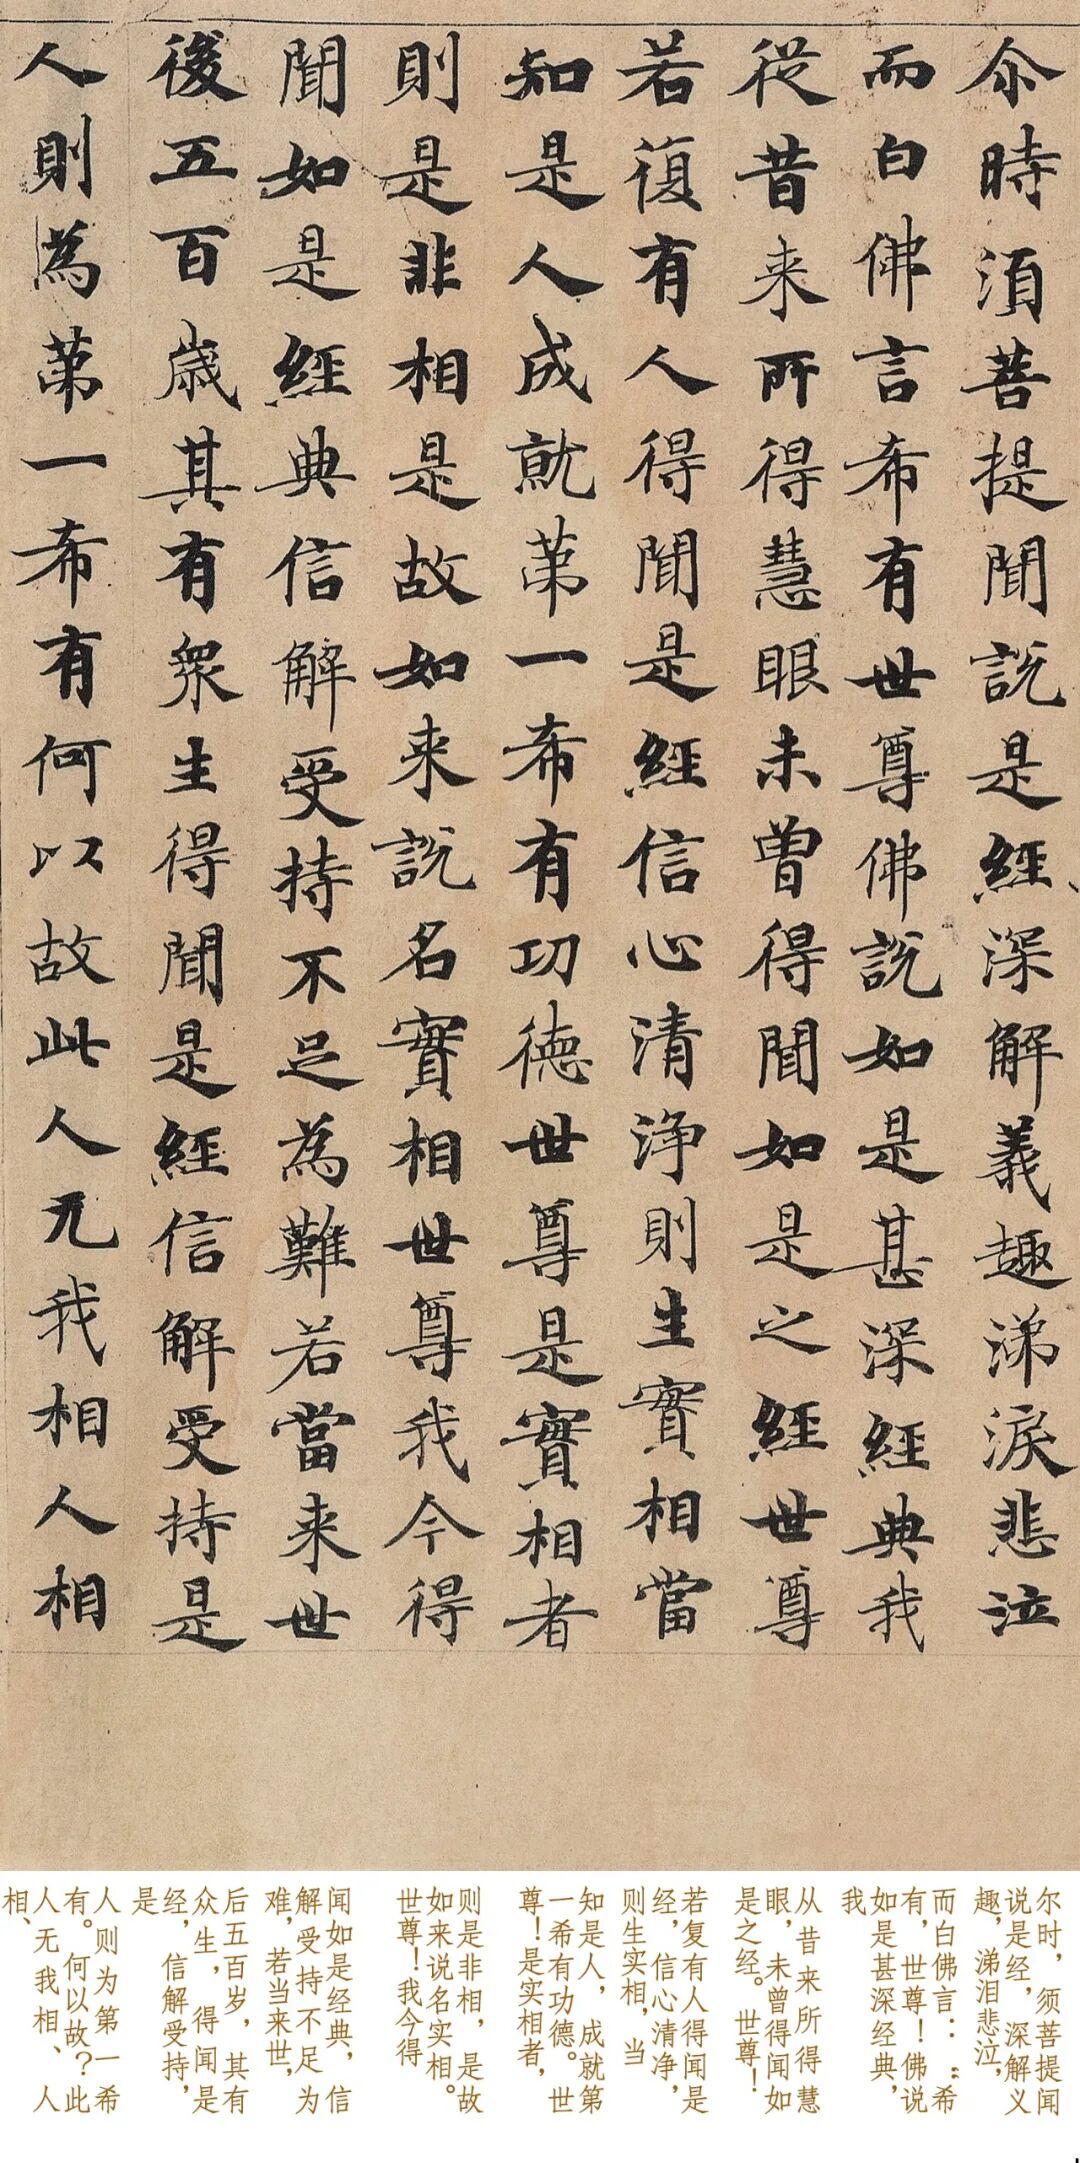 尒時湏菩提聞說是經深解義趣涕淚悲泣
而白佛言希有世尊佛說如是甚深經典我
従昔来所得慧眼未曾得聞如是之經世尊
若復有人得聞是經信心清浄則生實相當
知是人成就苐一希有功徳世尊是實相者
則是非相是故如来說名實相世尊我今得
聞如是經典信解受持不足為難若當来世
後五百歳其有衆生得聞是經信解受持是
人則為苐一希有何以故此人无我相人相
尔时，须菩提闻
说是经，深解义
趣，涕泪悲泣，
而白佛言：“希
有，世尊！佛说
如是甚深经典，
我
从昔来所得慧
眼，未曾得闻如
是之经。世尊！
若复有人得闻是
经，信心清净，
则生实相，当
知是人，成就第
一希有功德。世
尊！是实相者，
则是非相，是故
如来说名实相。
世尊！我今得
闻如是经典，信
解受持不足为
难，若当来世，
后五百岁，其有
众生，得闻是
经，信解受持，
是
人则为第一希
有。何以故？此
人无我相、人
相、